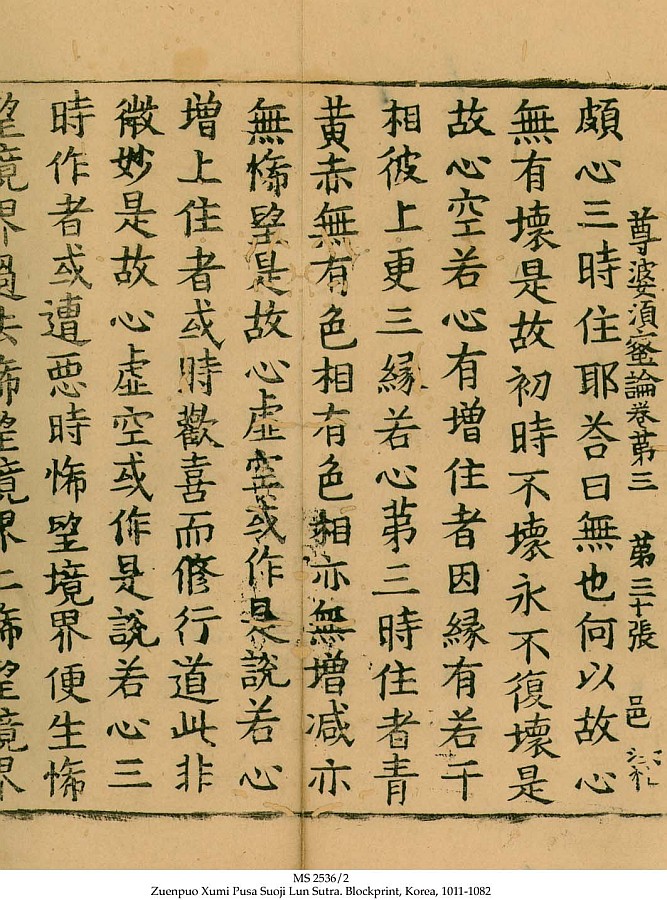 尊婆湏蜜論卷苐三 苐三十張 邑
頗心三時住耶荅曰無也何以故心
無有壞是故初時不壞永不復壞是
故心空若心有增住者因縁有若干
相彼上更三縁若心苐三時住者青
黄赤無有色相有色相亦無增减亦
無悕望是故心虛空或作是説若心
增上住者或時歡喜而修行道此非
微妙是故心虛空或作是說若心三
時作者或遭惡時悕望境界便生悕
望境界過去悕望境界悕望境界
MS 2536/2
Zuenpuo Xumi Pusa Suoji Lun Sutra. Blockprint, Korea, 1011-1082